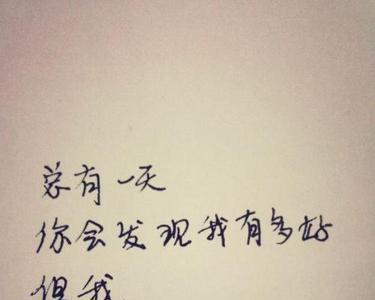 总有一天
你会发现我有多好
但我